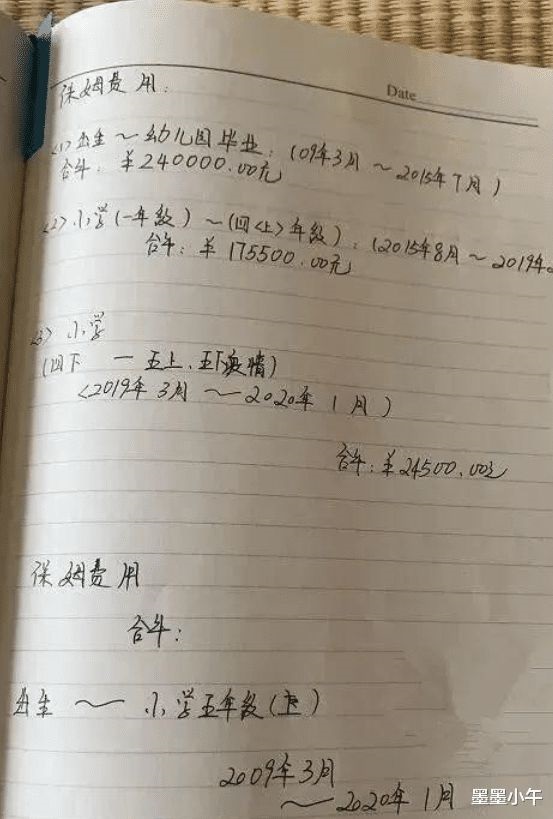 Date
保姆费用:
<1>出生～幼儿园毕业:(09年3月～2015年7月)
合计:¥240000.00元
<2>小学(一年级)～(四<上>年级):(2015年8月～2019年
合计:¥175500.00元
<3>小学
(四下 — 五上、五下疫情)
<2019年3月～2020年1月)
合计:¥24500.00元
保姆费用
合计:
出生～小学五年级(上)
2009年3月
～2020年1月
墨墨小午